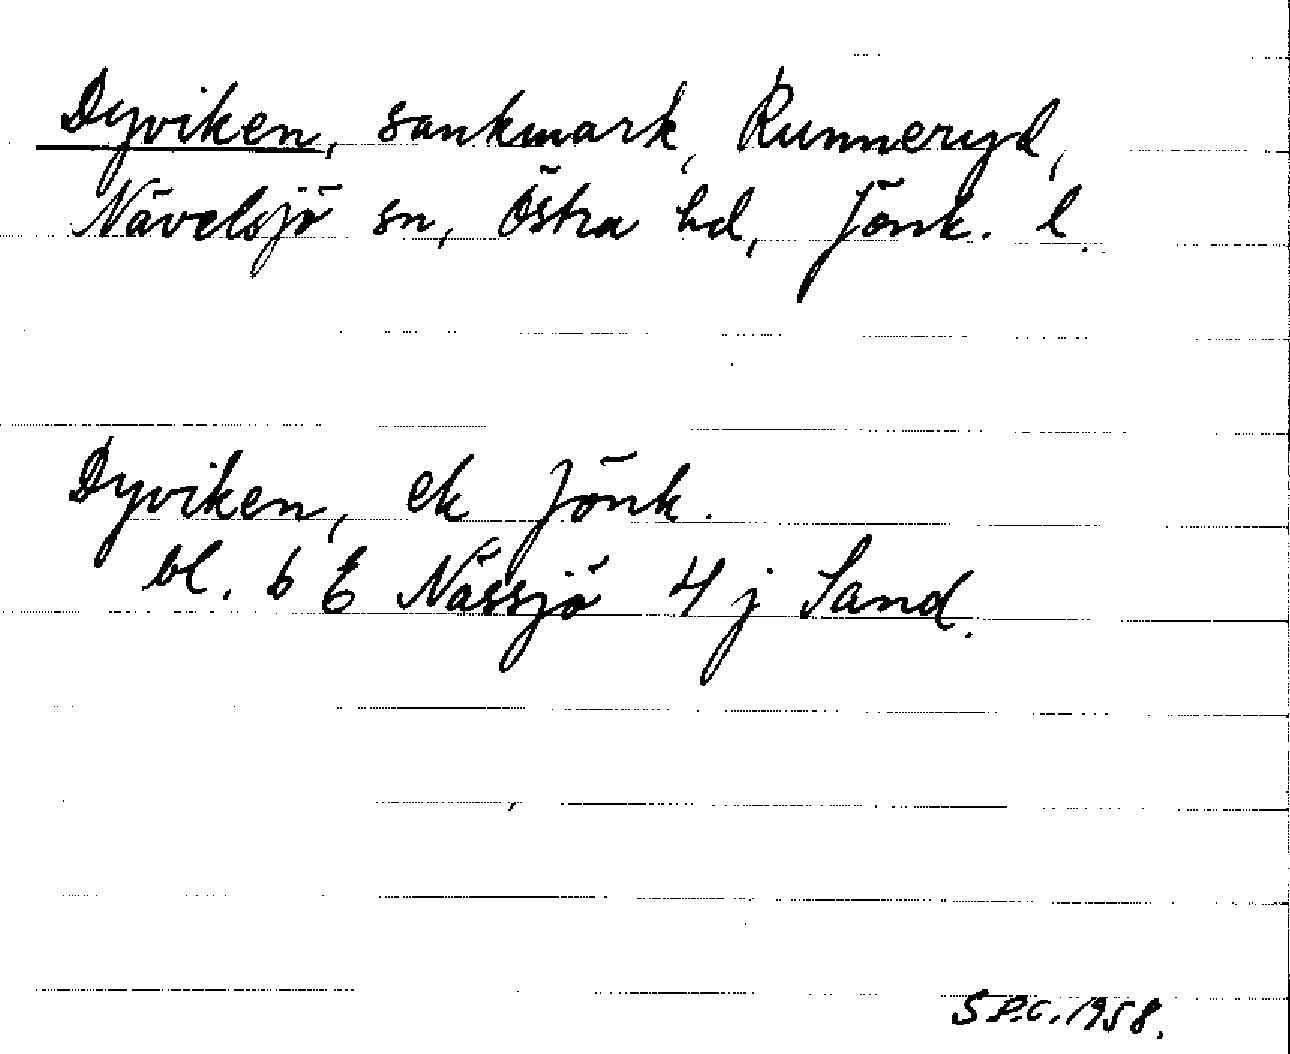 Dyviken, sankmark, Runneryd,
Nävelsjö sn, Östra hd, Jönk. l.
Dyviken, ek Jönk.
bl. 6 E Nässjö 4 j Sand.
S P.C. 1958.